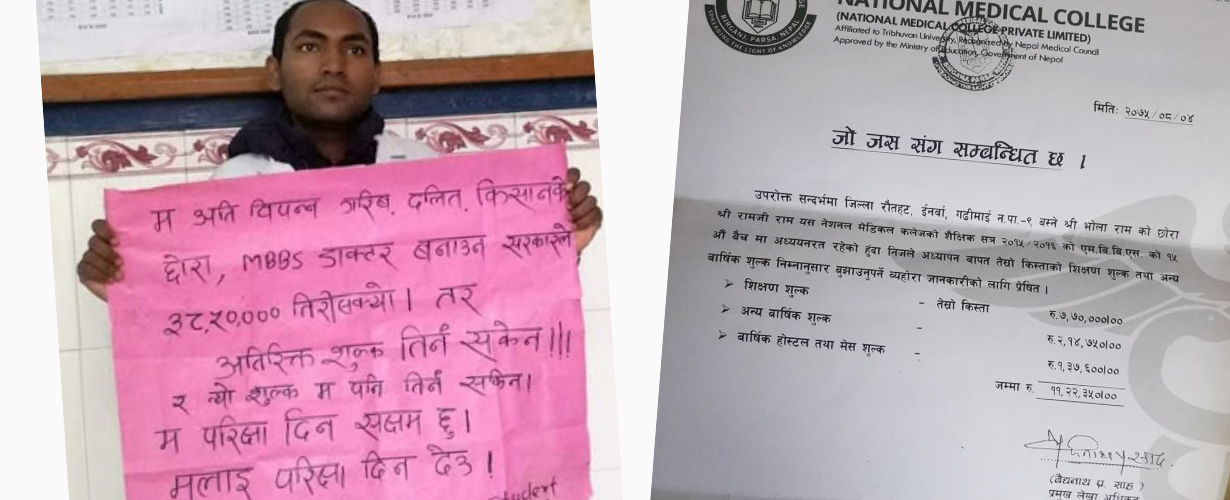 म अति विपन्न गरिब, दलित, किसानके
छोरा, MBBS डाक्टर बनाउन सरकारले
३८,५०,००० तिरीसक्यो। तर
अतिरिक्त शुल्क तिर्न सकेन!!!
र त्यो शुल्क म पनि तिर्न सकिन।
म परिक्षा दिन सक्षम छु।
मलाइ परिक्षा दिन देउ!
student
NATIONAL MEDICAL COLLEGE
(NATIONAL MEDICAL COLLEGE PRIVATE LIMITED)
Affiliated to Tribhuvan University, Recognized by Nepal Medical Council
Approved by the Ministry of Education, Government of Nepal
BIRGANJ, PARSA, NEPAL
SPREADING THE LIGHT OF KNOWLEDGE
मिति: २०७५/०८/०४
जो जस संग सम्बन्धित छ ।
उपरोक्त सन्दर्भमा जिल्ला रौतहट, ईनर्वा, गढीमाई न.पा.-९ बस्ने श्री भोला राम को छोरा
श्री रामजी राम यस नेशनल मेडिकल कलेजको शैक्षिक सत्र २०१५/२०१६ को एम.बि.बि.एस. को १५
औ बैच मा अध्ययनरत रहेको हुंवा निजले अध्यापन बापत तेस्रो किस्ताको शिक्षण शुल्क तथा अन्य
बार्षिक शुल्क निम्नानुसार बुझाउनुपर्ने व्यहोरा जानकारीको लागि प्रेषित ।
➢ शिक्षण शुल्क - तेस्रो किस्ता रु.७,७०,०००।००
➢ अन्य बार्षिक शुल्क - रु.२,१४,७५०।००
➢ बार्षिक होस्टल तथा मेस शुल्क - रु.१,३७,६००।००
जम्मा रु. ११,२२,३५०।००
(वैद्यनाथ प्र. साह)
प्रमुख लेखा अधिकृत